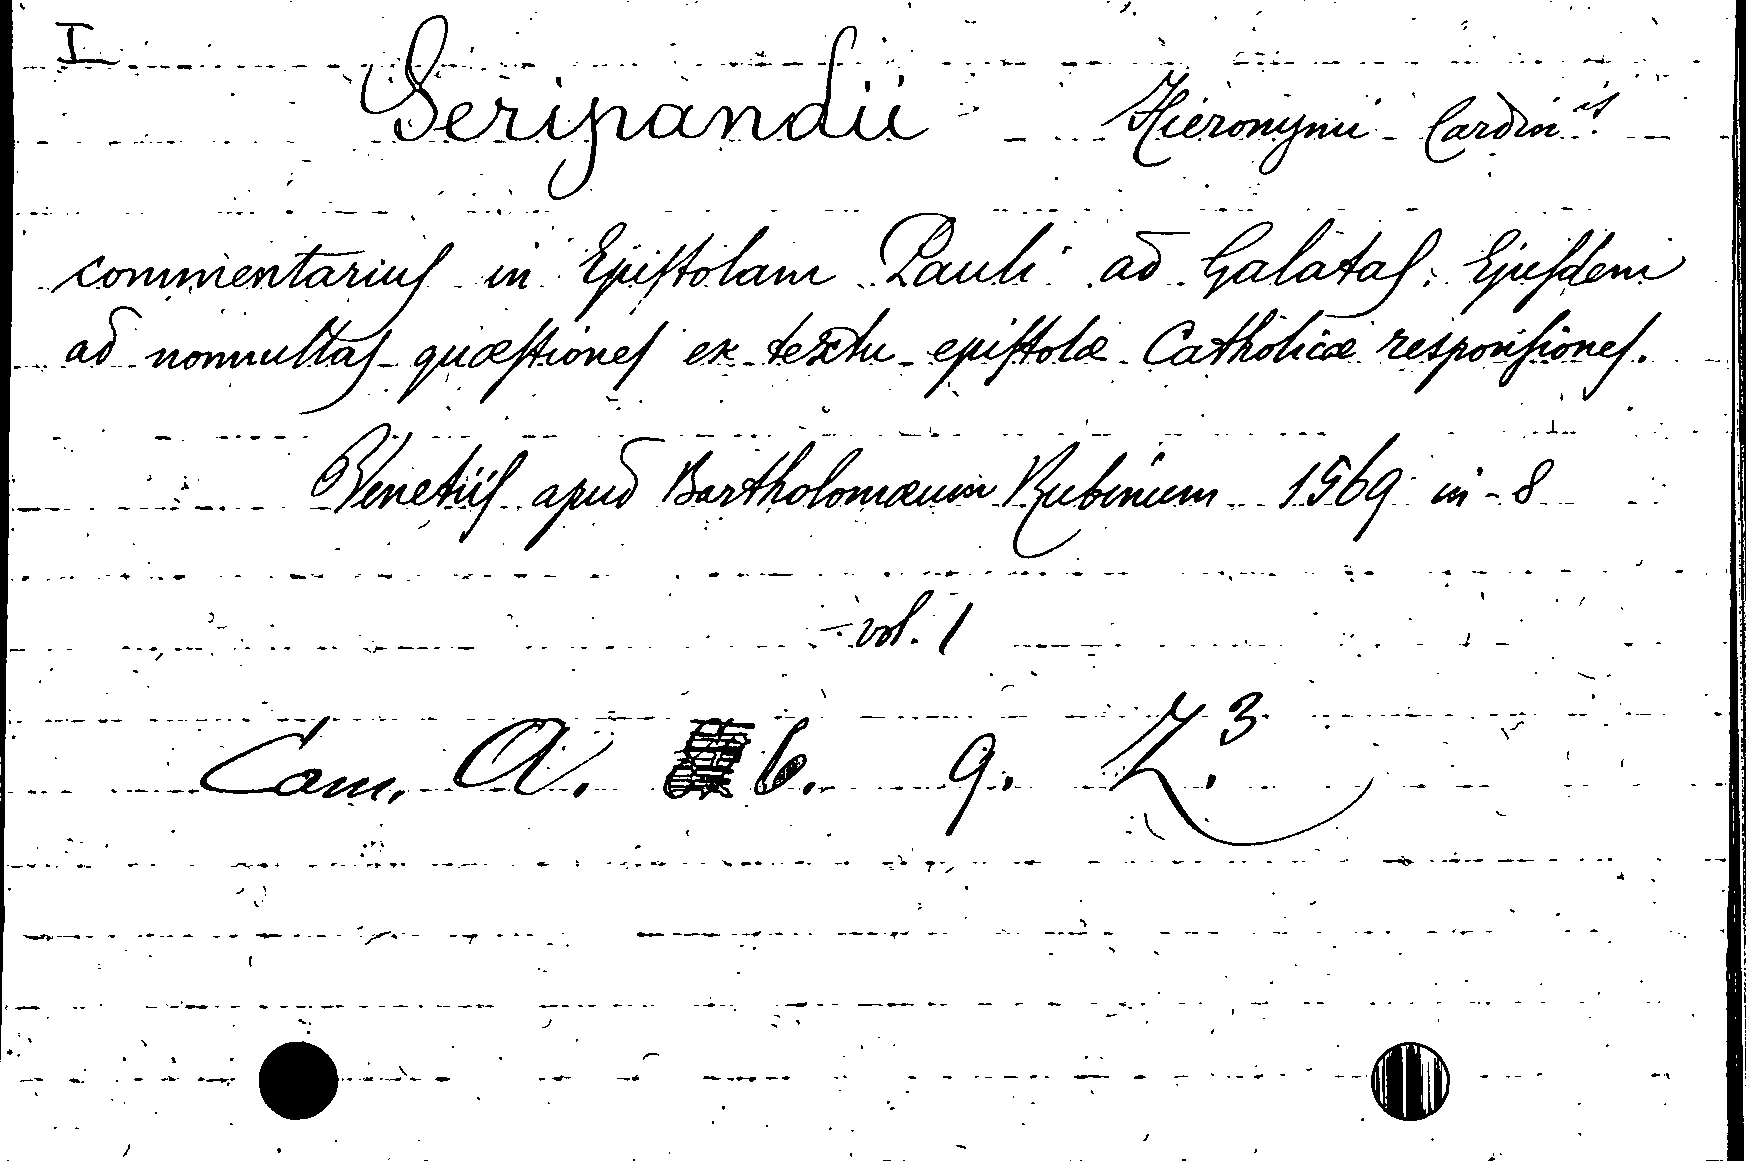 I
Seripandii Hieronymi Cardin.is
commentarius in Epistolam Pauli ad Galatas. Ejusdem
ad nonnultas quæstiones ex textu epistolæ Catholicæ responsiones.
Venetiis apud Bartholomæum Rubinum 1569 in-8
vol. 1
Cam. A. 6. 9. Z.3